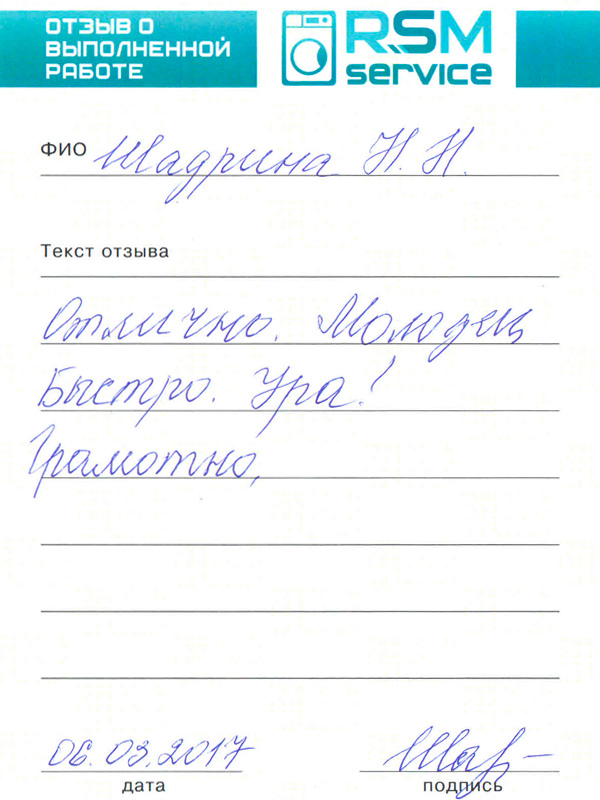 ОТЗЫВ О
ВЫПОЛНЕННОЙ
РАБОТЕ
RSM
service
ФИО Шадрина Н. Н.
Текст отзыва
Отлично. Молодец
Быстро. Ура!
Грамотно,
06.03.2017 Шадр
дата подпись